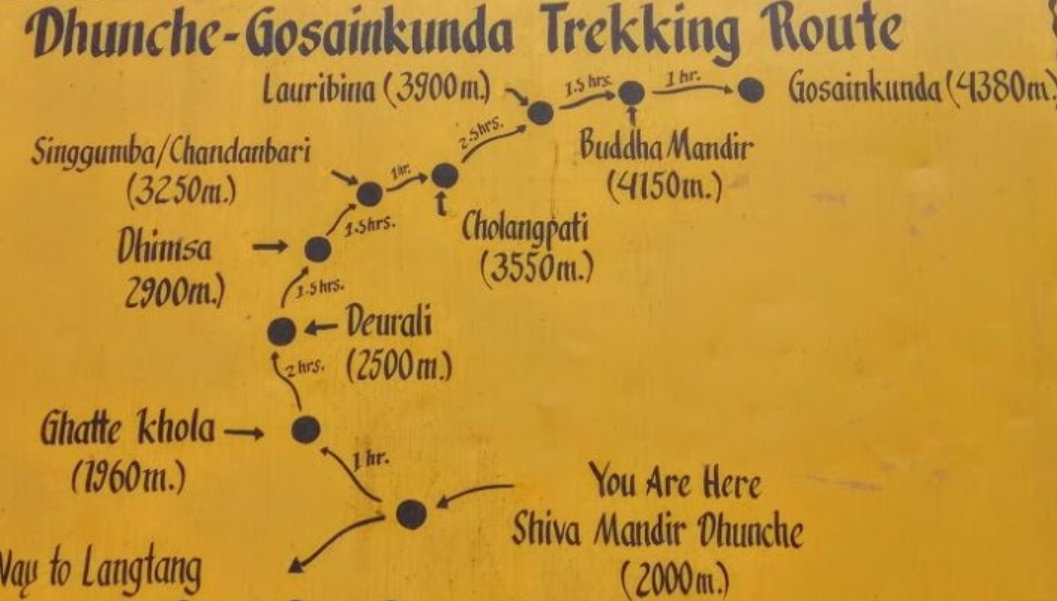 Dhunche-Gosainkunda Trekking Route
Lauribina (3900m.)
1.5 hrs.
1 hr.
Gosainkunda (4380m.)
Buddha Mandir
(4150m.)
2.5hrs.
Singgumba/Chandanbari
(3250m.)
1hr.
Cholangpati
(3550m.)
1.5hrs.
Dhimsa
2900m.)
1.5hrs.
Deurali
(2500m.)
2hrs.
Ghatte khola
(1960m.)
1 hr.
You Are Here
Shiva Mandir Dhunche
(2000m.)
Way to Langtang